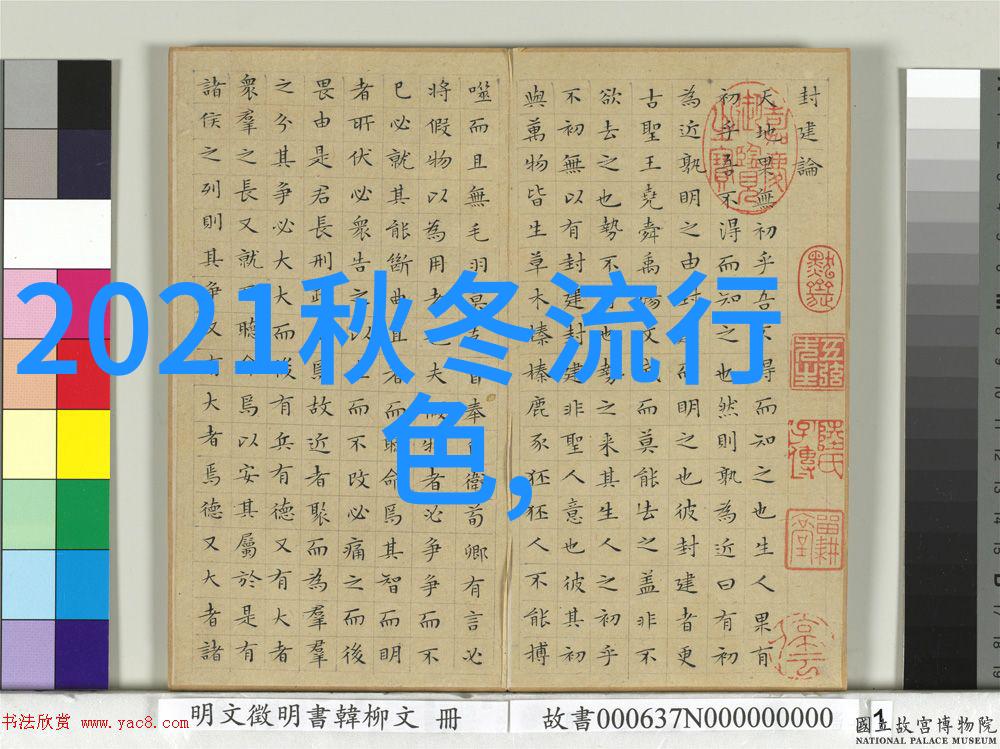 封建論
天地果無初乎吾不得而知之也生人果有
初乎吾不得而知之也然則孰為近曰有初
為近孰明之由封建而明之也彼封建者更
古聖王堯舜禹湯文武而莫能去之蓋非不
欲去之也勢不可也勢之來其生人之初乎
不初無以有封建封建非聖人意也彼其初
與萬物皆生草木榛榛鹿豕狉狉人不能搏
噬而且無毛羽莫克自奉自衛荀卿有言必
將假物以為用者也夫假物者必爭爭而不
已必就其能斷曲直者而聽命焉其智而明
者所伏必眾告之以直而不改必痛之而後
畏由是君長刑政焉故近者聚而為羣
之分其爭必大大而後有兵有德又有大者
眾羣之長又就而聽命焉以安其屬於是有
諸侯之列則其爭又有大者焉德又大者諸
嘉慶御覽之寶
2021秋冬流行
色,
书法欣赏 www.yac8.com
明文徵明書韓柳文 冊
故書000637N000000000
1
國立故宮博物院
NATIONAL PALACE MUSEUM